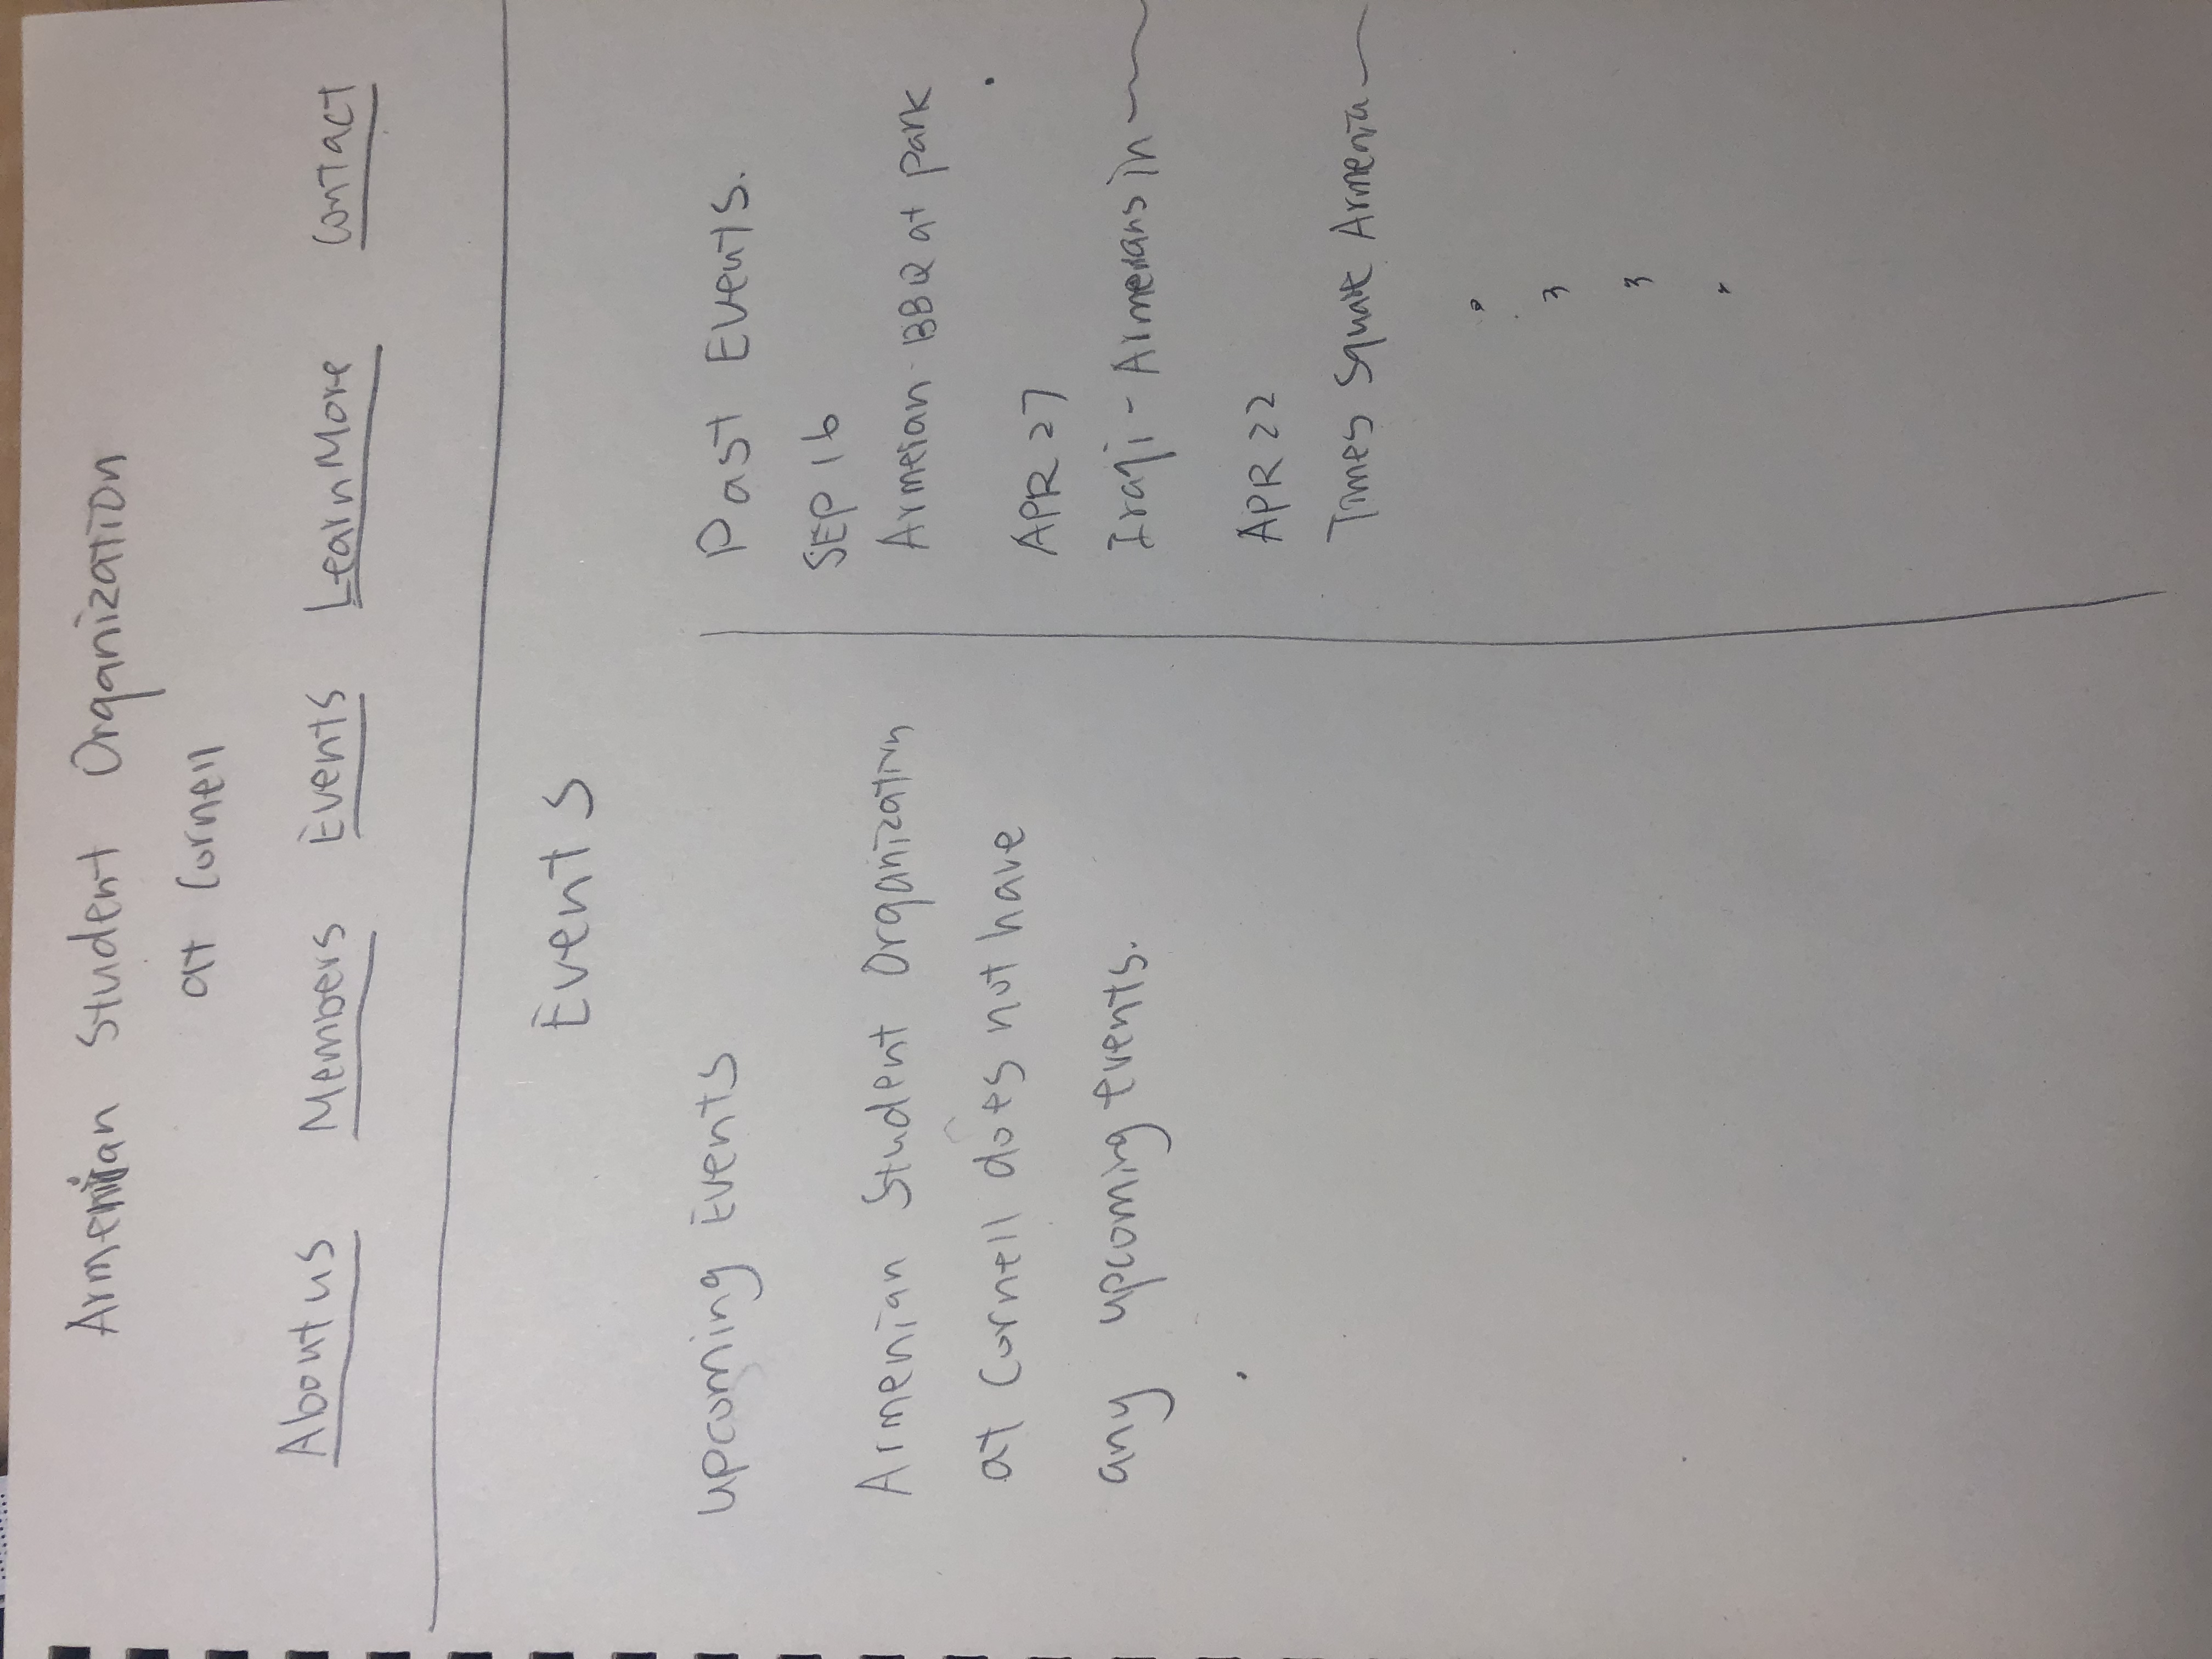 Armenian Student Organization
at Cornell
About us Members Events Learn More Contact
Events
Upcoming Events
Armenian Student Organization
at Cornell does not have
any upcoming events.
Past Events.
SEP 16
Armeian BBQ at park
APR 27
Iraqi - Armenians in
APR 22
Times Square Armenia